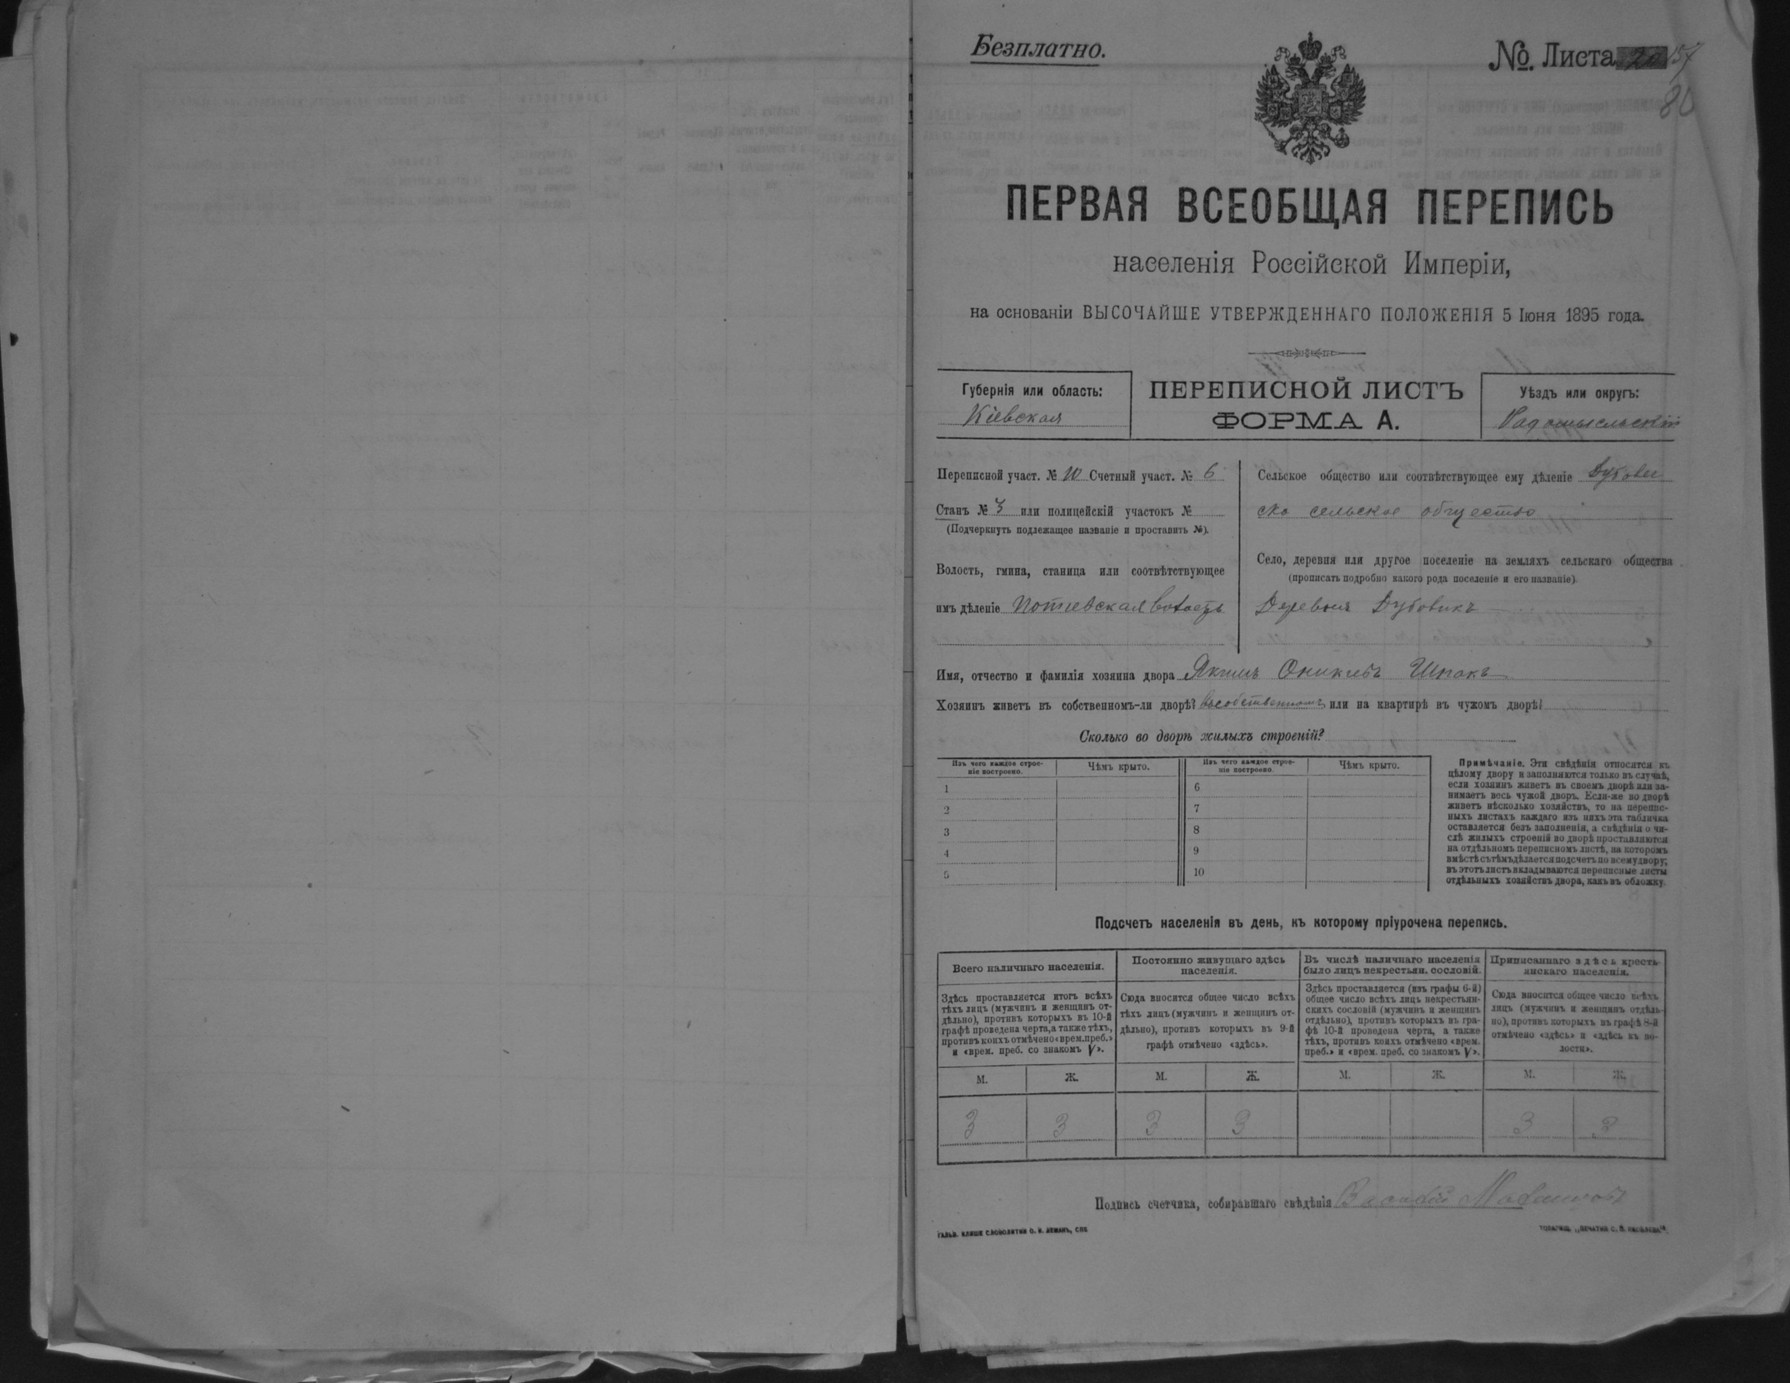 Безплатно.
№ Листа 20 157
80
ПЕРВАЯ ВСЕОБЩАЯ ПЕРЕПИСЬ
населенія Россійской Имперіи,
на основаніи ВЫСОЧАЙШЕ УТВЕРЖДЕННАГО ПОЛОЖЕНІЯ 5 Іюня 1895 года.
Губернія или область:
Кіевская
ПЕРЕПИСНОЙ ЛИСТЪ
ФОРМА А.
Уѣздъ или округъ:
Радомысльскій
Переписной участ. № 10 Счетный участ. № 6
Станъ № 3 или полицейскій участокъ №
(Подчеркнуть подлежащее названіе и проставить №).
Волость, гмина, станица или соотвѣтствующее
имъ дѣленіе Потіевская волость
Сельское общество или соотвѣтствующее ему дѣленіе Дубови
ско сельское общество
Село, деревня или другое поселеніе на земляхъ сельскаго общества
(прописать подробно какого рода поселеніе и его названіе)
Деревня Дубовикъ
Имя, отчество и фамилія хозяина двора Якимъ Шпакъ
Хозяинъ живетъ въ собственномъ-ли дворѣ? Въ собственномъ или на квартирѣ въ чужомъ дворѣ?
Сколько во дворѣ жилыхъ строеній?
Изъ чего каждое строе-
ніе построено.
Чѣмъ крыто.
Изъ чего каждое строе-
ніе построено.
Чѣмъ крыто.
1 6
2 7
3 8
4 9
5 10
Примѣчаніе. Эти свѣдѣнія относятся къ
цѣлому двору и заполняются только въ случаѣ,
если хозяинъ живетъ въ своемъ дворѣ или за-
нимаетъ весь чужой дворъ. Если-же во дворѣ
живетъ нѣсколько хозяйствъ, то на перепис-
ныхъ листахъ каждаго изъ нихъ эта табличка
оставляется безъ заполненія, а свѣдѣнія о чи-
слѣ жилыхъ строеній во дворѣ проставляются
на отдѣльномъ переписномъ листѣ, на которомъ
вмѣстѣ съ тѣмъ дѣлается подсчетъ по всему двору;
въ этотъ листъ вкладываются переписные листы
отдѣльныхъ хозяйствъ двора, какъ въ обложку.
Подсчетъ населенія въ день, къ которому пріурочена перепись.
Всего наличнаго населенія.
Здѣсь проставляется итогъ всѣхъ
тѣхъ лицъ (мужчинъ и женщинъ от-
дѣльно), противъ которыхъ въ 10-й
графѣ проведена черта, а также тѣхъ,
противъ коихъ отмѣчено «врем. преб.»
и «врем. преб. со знакомъ V».
Постоянно живущаго здѣсь
населенія.
Сюда вносится общее число всѣхъ
тѣхъ лицъ (мужчинъ и женщинъ от-
дѣльно), противъ которыхъ въ 9-й
графѣ отмѣчено «здѣсь».
Въ числѣ наличнаго населенія
было лицъ некрестьян. сословій.
Здѣсь проставляется (изъ графы 6-й)
общее число всѣхъ лицъ некрестьян-
скихъ сословій (мужчинъ и женщинъ
отдѣльно), противъ которыхъ въ гра-
фѣ 10-й проведена черта, а также
тѣхъ, противъ коихъ отмѣчено «врем.
преб.» и «врем. преб. со знакомъ V».
Приписаннаго здѣсь кресть-
янскаго населенія.
Сюда вносится общее число всѣхъ
лицъ (мужчинъ и женщинъ отдѣль-
но), противъ которыхъ въ графѣ 8-й
отмѣчено «здѣсь» и «здѣсь въ во-
лости».
М. Ж. М. Ж. М. Ж. М. Ж.
3 3 3 3 3 3
Подпись счетчика, собиравшаго свѣдѣнія Василій